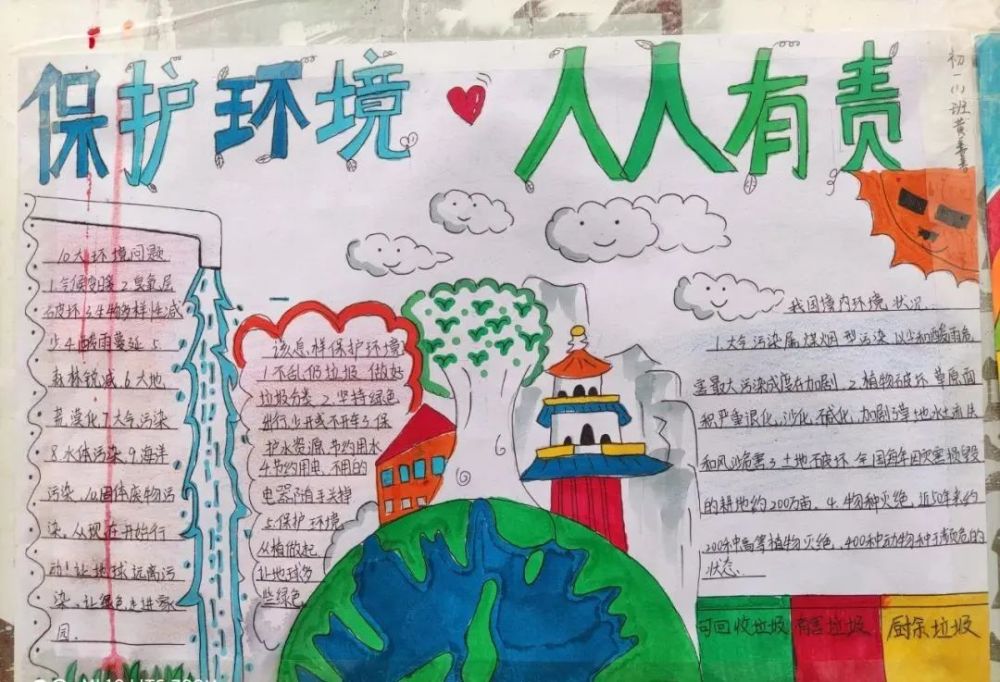 保护环境 人人有责
初一(1)班黄
10大环境问题
1.气候变暖 2.臭氧层
破坏 3.生物多样性减
少 4.酸雨蔓延 5.
森林锐减 6.大地
荒漠化 7.大气污染
8.水体污染 9.海洋
污染 10.固体废物污
染,从现在开始行
动!让地球远离污
染,让绿色走进家
园.
该怎样保护环境
1.不乱仍垃圾 做好
垃圾分类 2.坚持绿色
出行,少开或不开车 3.保
护水资源 节约用水
4.节约用电,不用的
电器随手关掉
5.保护环境
从植做起
让地球多
些绿色
我国境内环境状况
1.大气污染属煤烟型污染,以尘和酸雨危
害最大污染成度在加剧.2.植物破坏 草原面
积严重退化,沙化,碱化,加剧了草地水土流失
和风沙危害 3.土地破坏 全国每年因灾害损毁
的耕地约200万亩.4.物种灭绝,近50年来约
200种高等植物灭绝,400种动物种于濒危的
状态.
可回收垃圾 有害垃圾 厨余垃圾